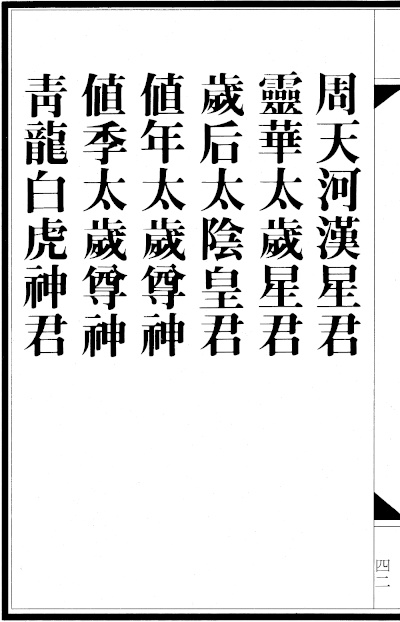 周天河漢星君
靈華太歲星君
歲后太陰皇君
値年太歲尊神
値季太歲尊神
靑龍白虎神君
四二